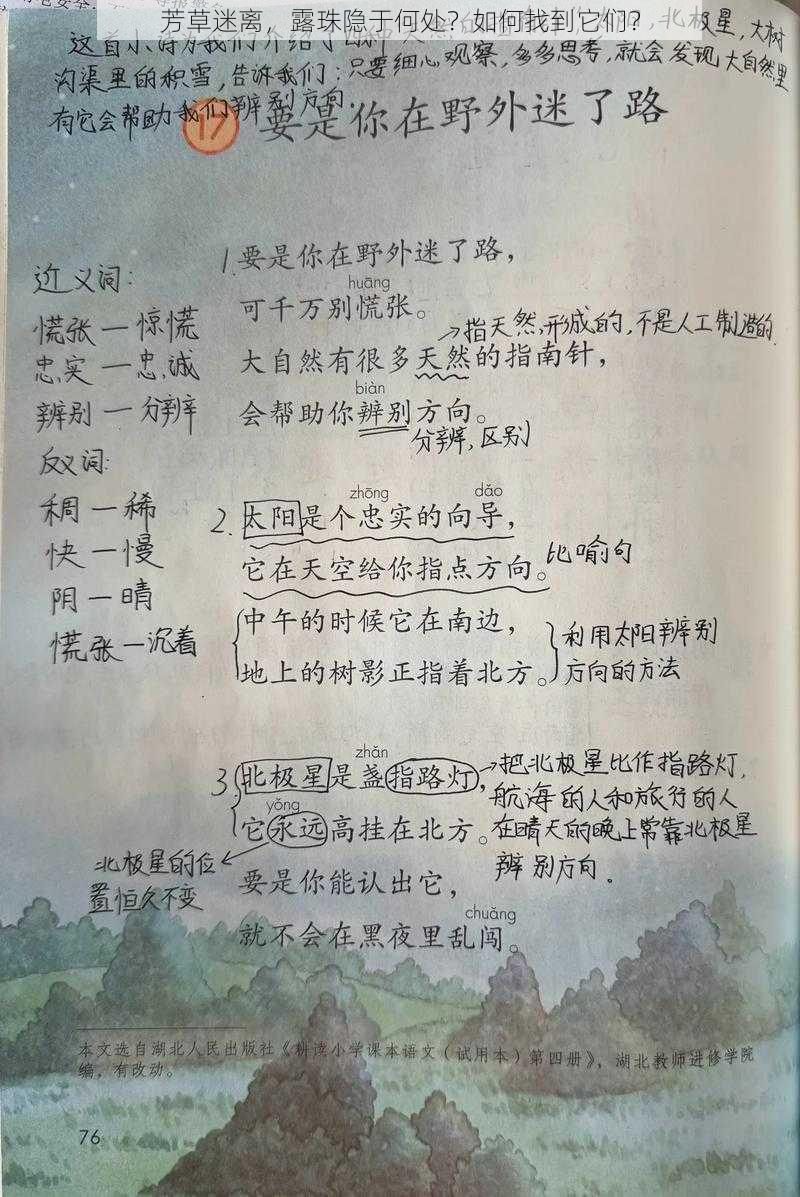 芳草迷离，露珠隐于何处？如何找到它们？
这首小诗为我们介绍了四种天然的
北极星，大树
沟渠里的积雪，告诉我们：只要细心观察，多多思考，就会发现大自然里
有它会帮助我们辨别方向.
17 要是你在野外迷了路
1.要是你在野外迷了路，
huāng
可千万别慌张。
→指天然形成的，不是人工制造的.
大自然有很多天然的指南针，
biàn
会帮助你辨别方向。
分辨，区别
近义词：
慌张一惊慌
忠实一忠诚
辨别一分辨
反义词：
稠一稀
快一慢
阴一晴
慌张一沉着
zhōng dǎo
2.太阳是个忠实的向导，
它在天空给你指点方向。
比喻句
中午的时候它在南边，
地上的树影正指着北方。
利用太阳辨别
方向的方法
zhǎn
3.北极星是盏指路灯，
yǒng
它永远高挂在北方。
→把北极星比作指路灯，
航海的人和旅行的人
在晴天的晚上常靠北极星
辨别方向.
北极星的位
置恒久不变
要是你能认出它，
chuǎng
就不会在黑夜里乱闯。
本文选自湖北人民出版社《耕读小学课本语文（试用本）第四册》，湖北教师进修学院
编，有改动。
76